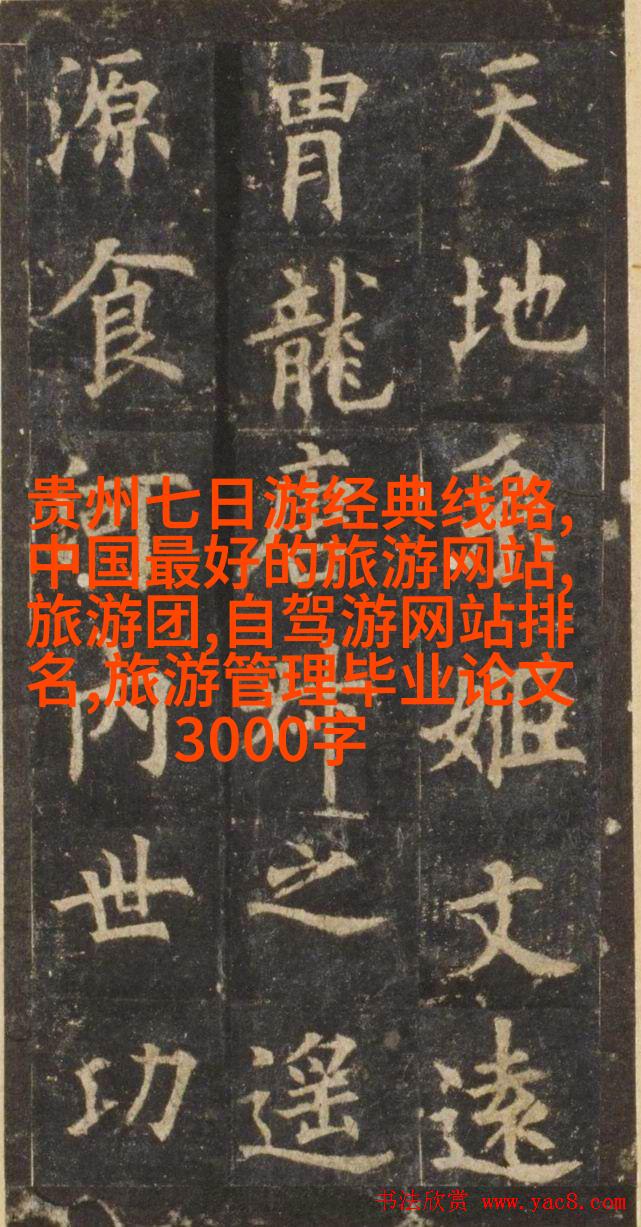 天地姬文遠
冑龍之遥
源食内世功
贵州七日游经典线路,
中国最好的旅游网站,
旅游团,自驾游网站排
名,旅游管理毕业论文
3000字
书法欣赏 www.yac8.com